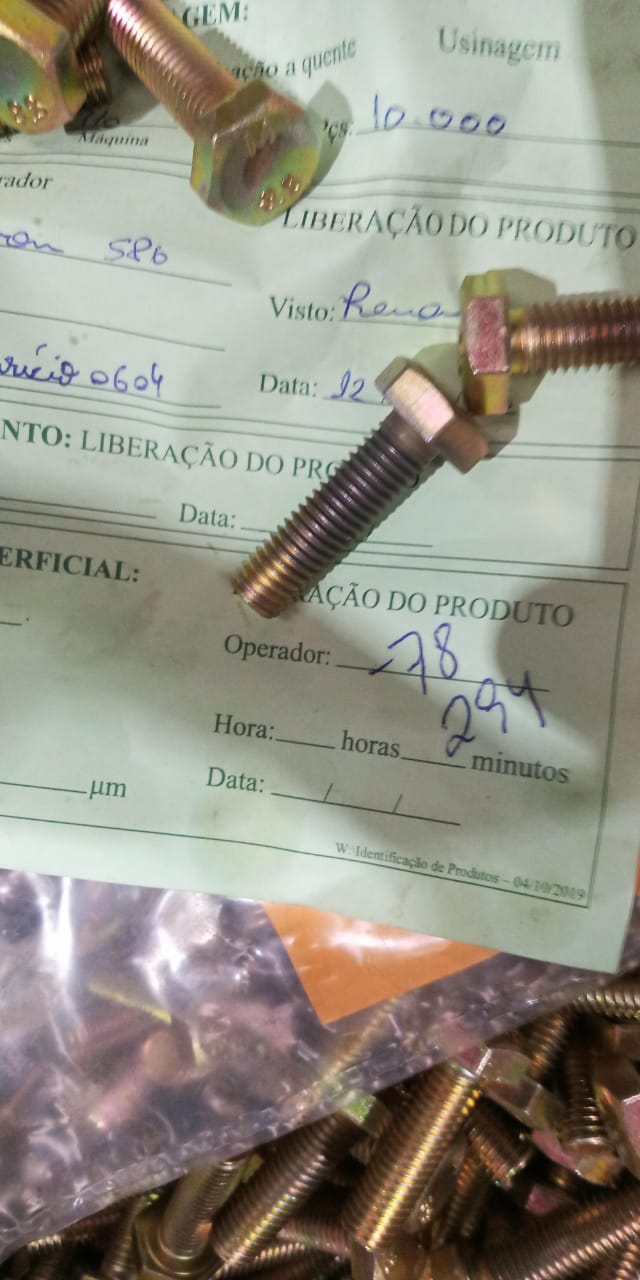 GEM:
ação a quente Usinagem
Pçs: 10.000
Máquina
rador
LIBERAÇÃO DO PRODUTO
586
Visto: Renan
0604
Data: 12
NTO: LIBERAÇÃO DO PRO
Data:
ERFICIAL:
AÇÃO DO PRODUTO
Operador: 78
294
Hora: horas minutos
µm Data: / /
W:\Identificação de Produtos – 04/10/2019
8.8
8.8